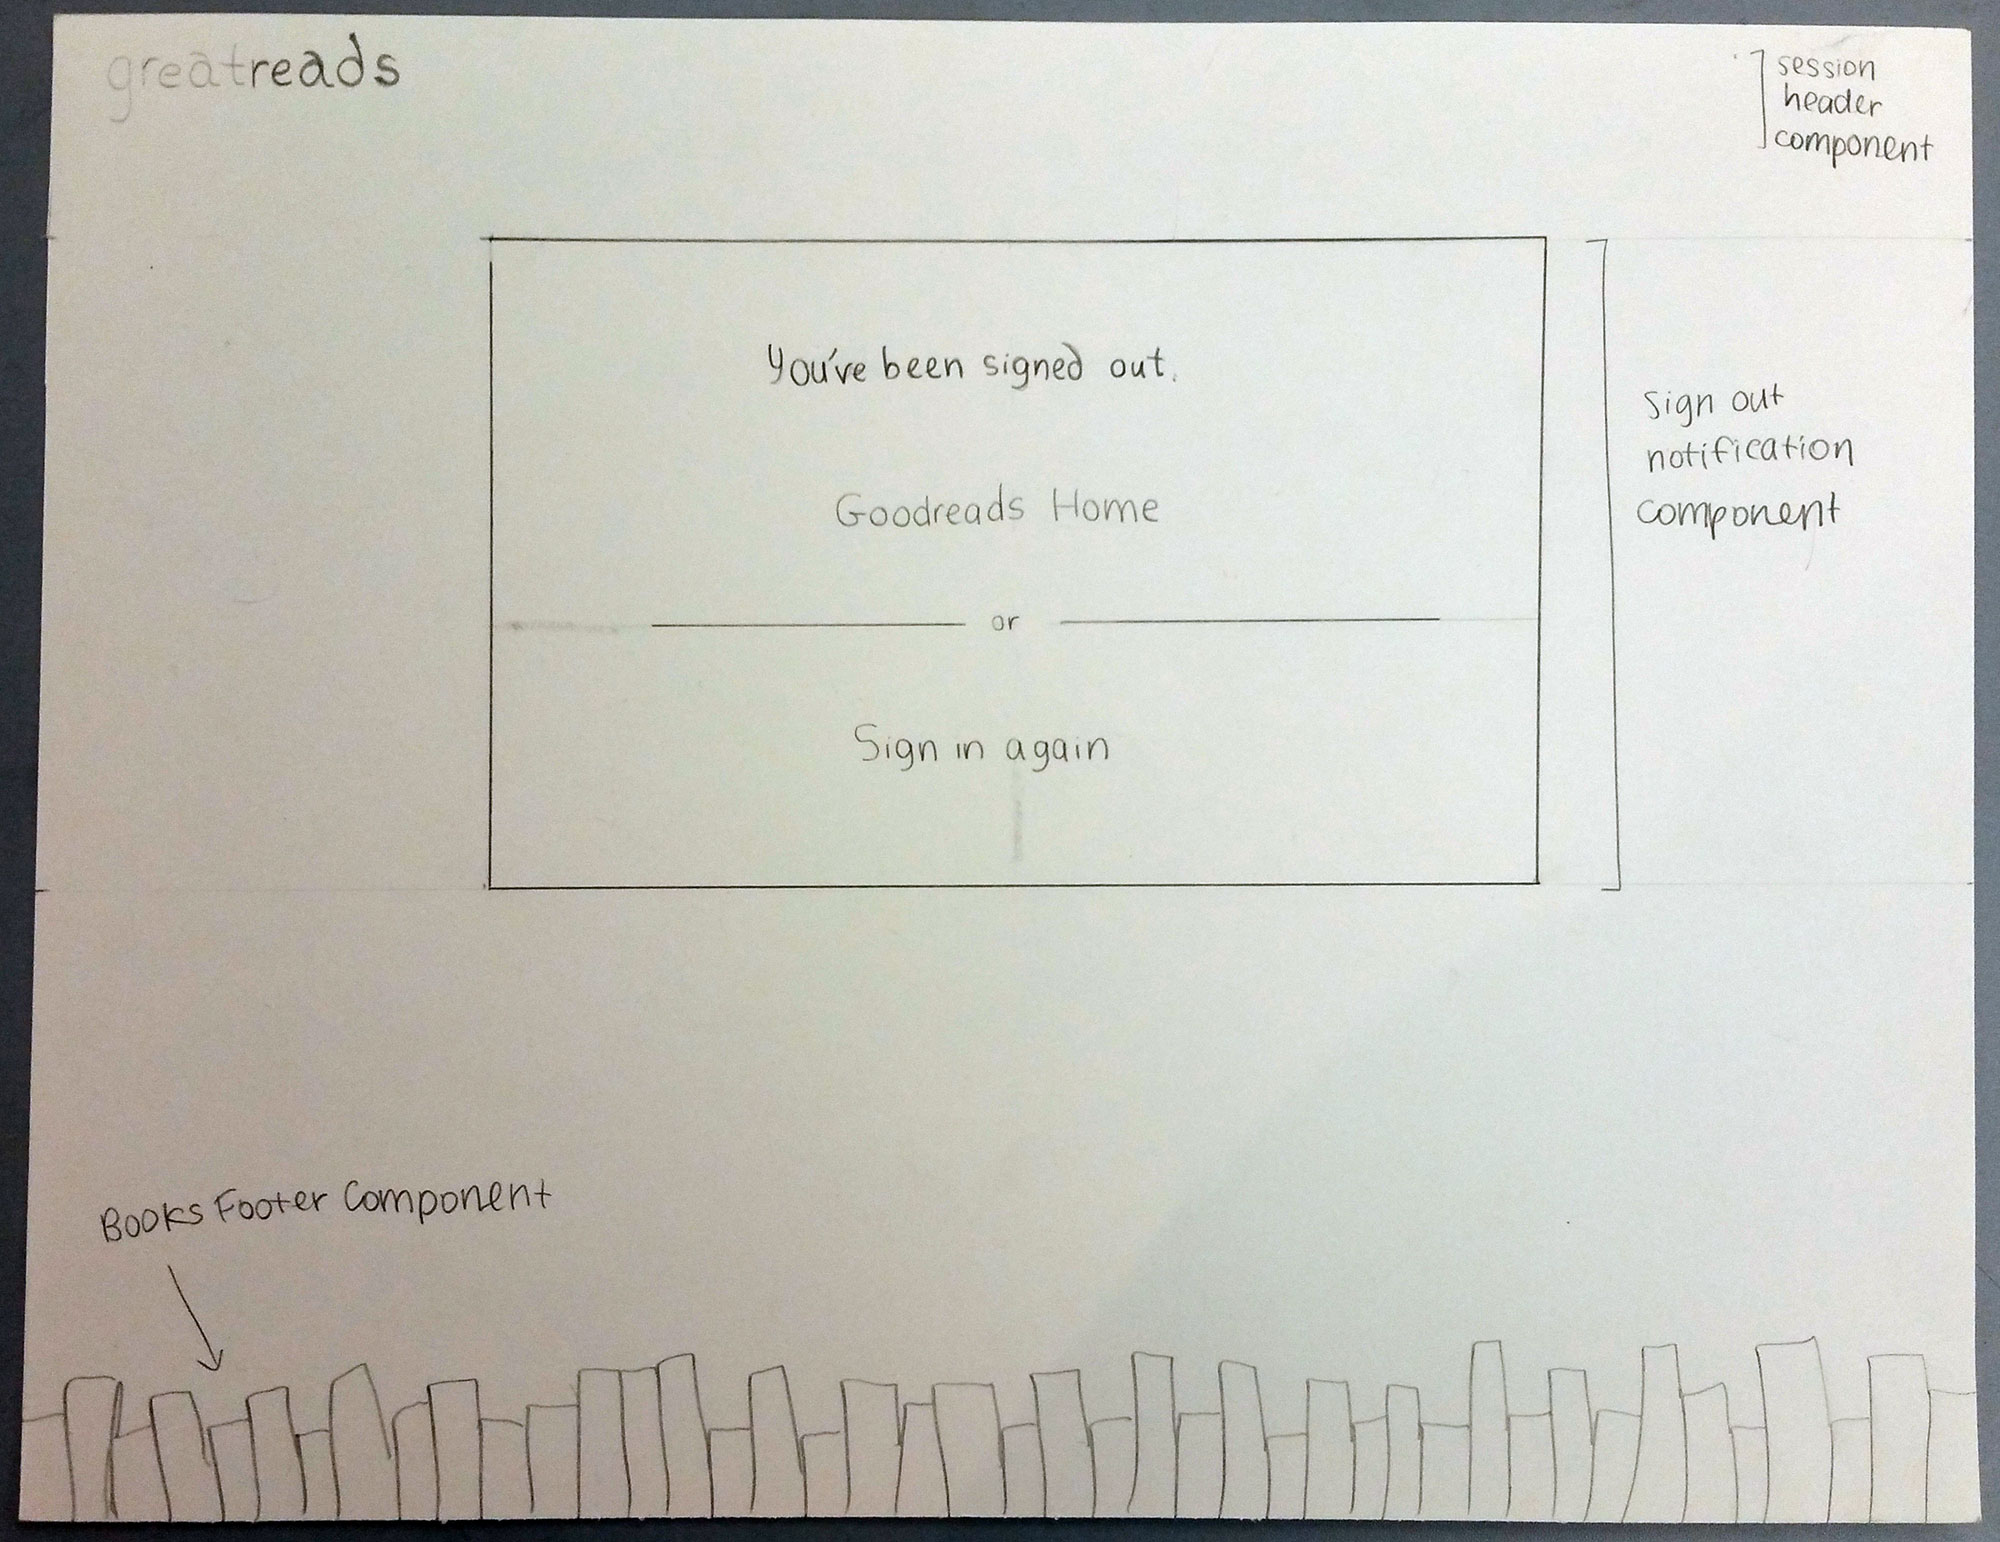 greatreads
session
header
component
You've been signed out.
Goodreads Home
or
Sign in again
Sign out
notification
component
Books Footer Component